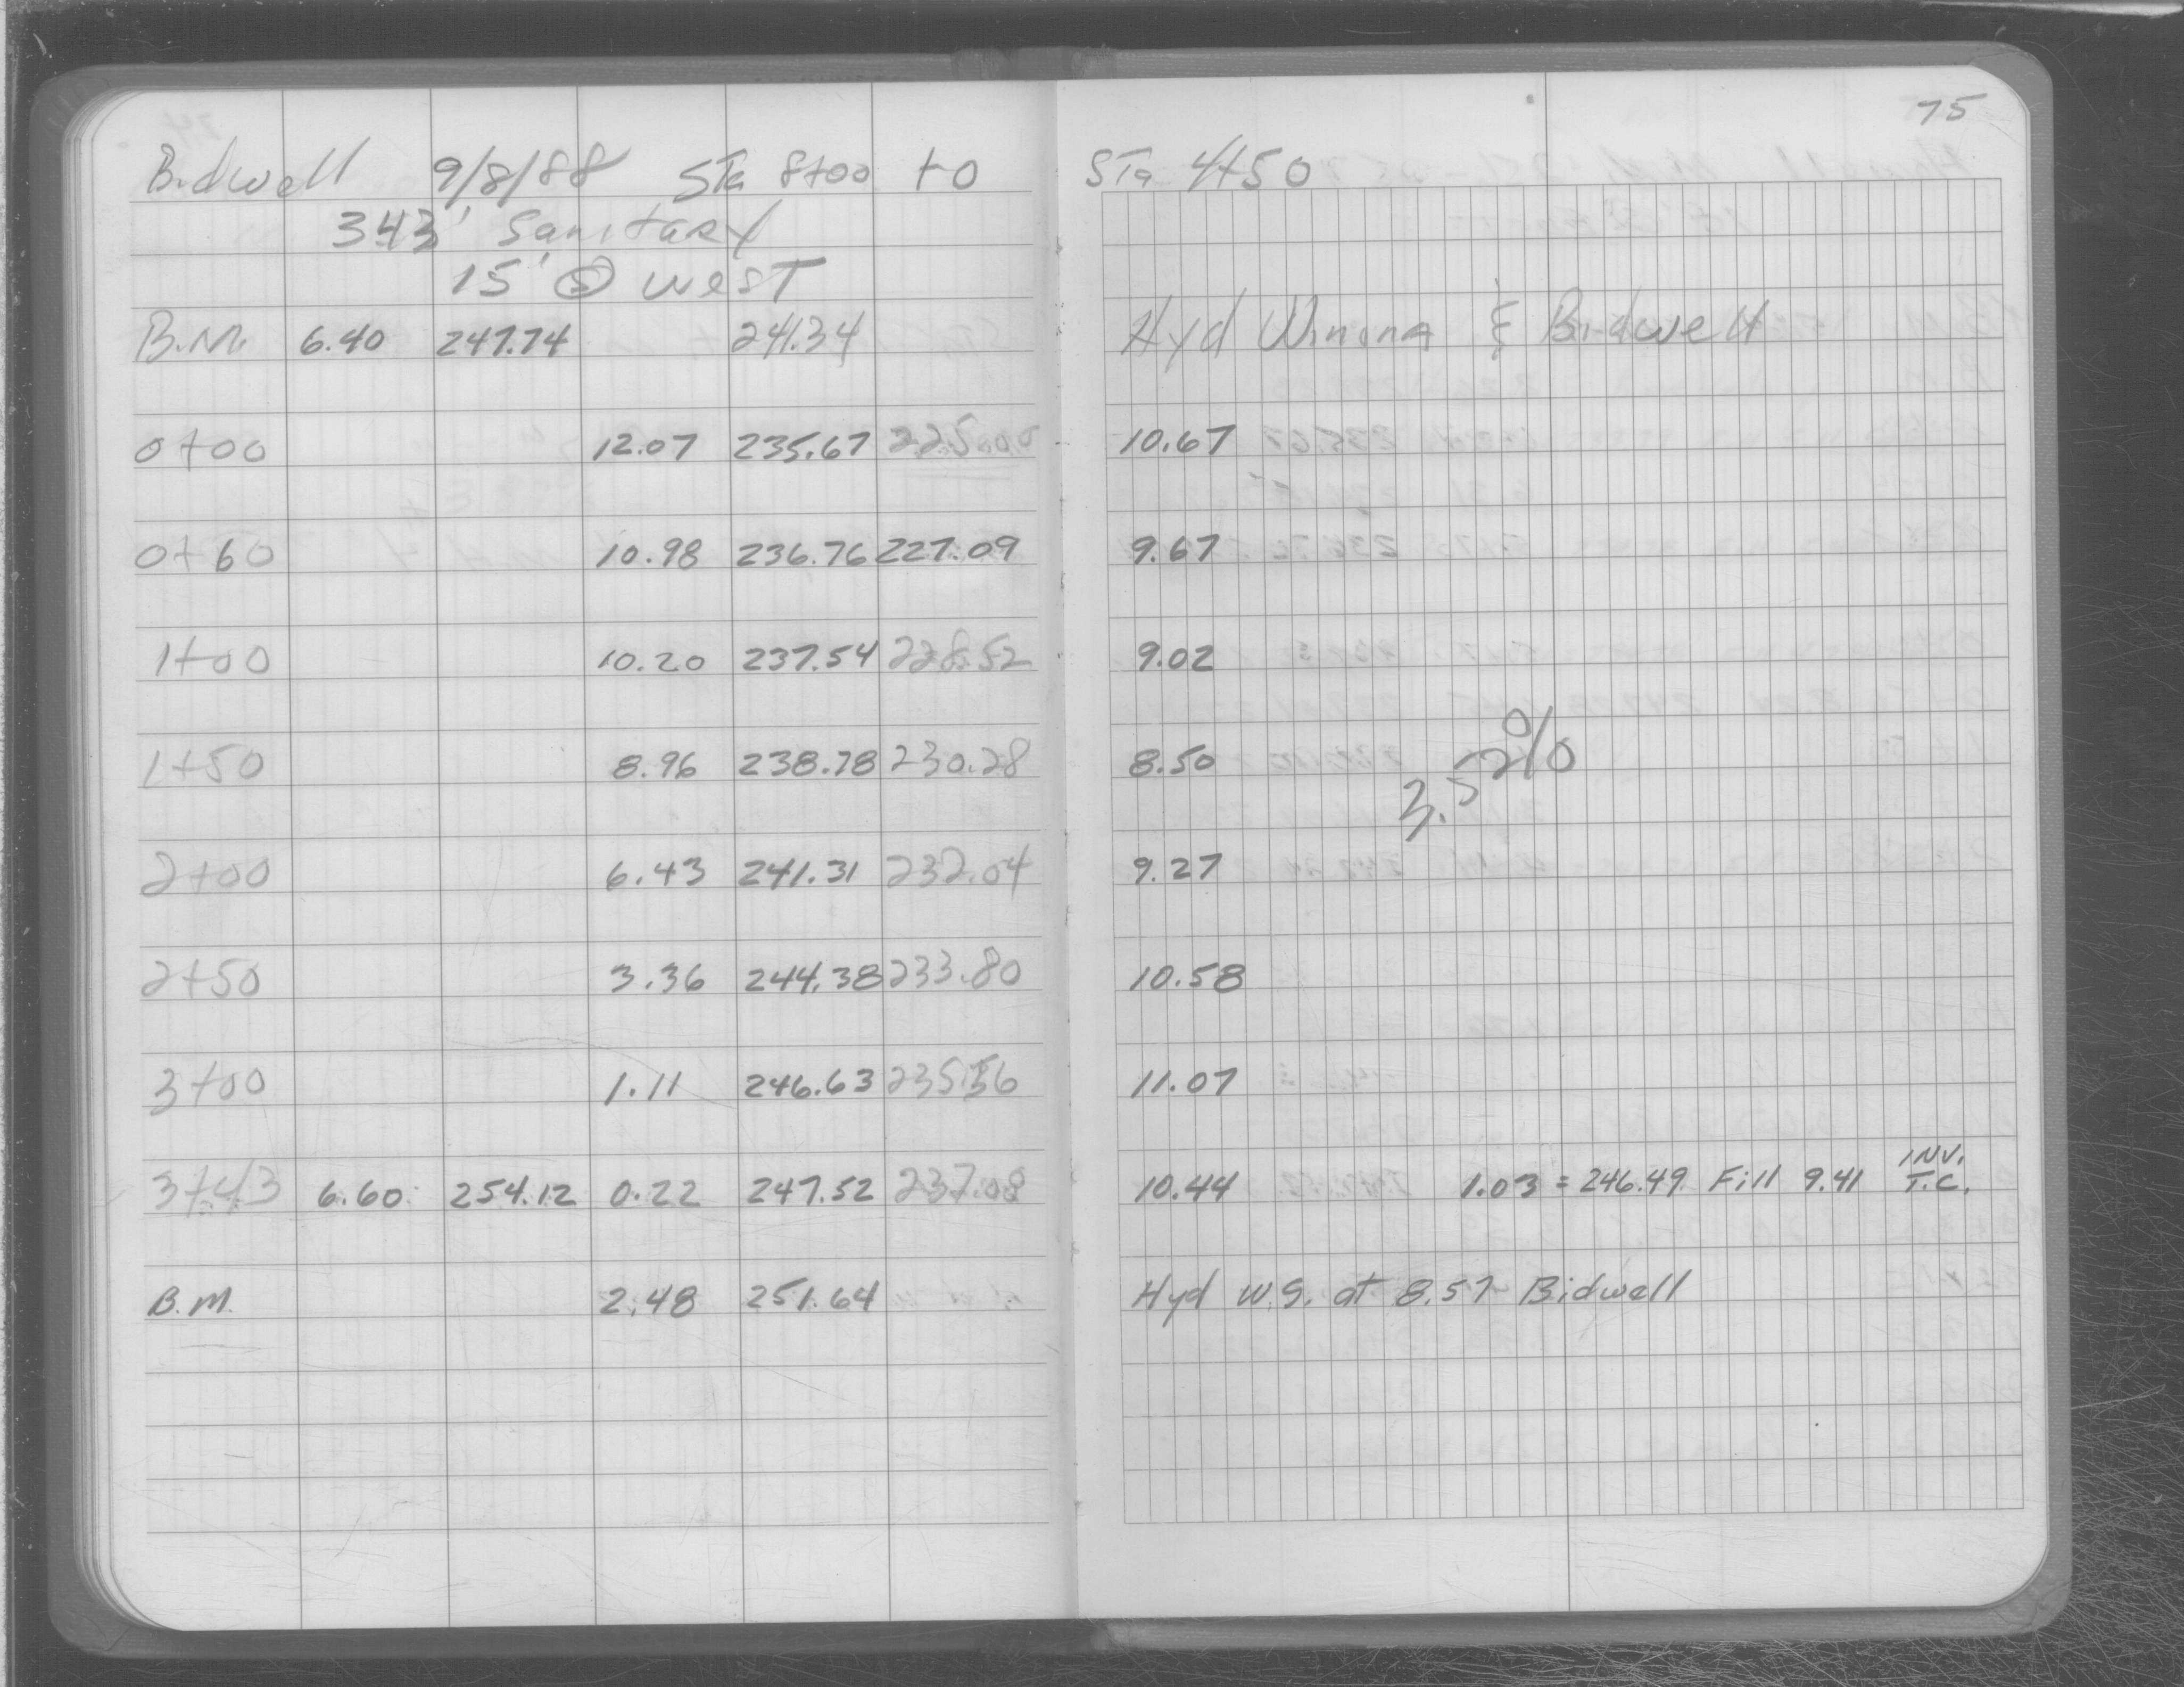 75
Bidwell 9/8/88 STa 8+00 to STa 4+50
343' Sanitary
15' @ west
B.M. 6.40 247.74 241.34 Hyd Winona & Bidwell
0+00 12.07 235.67 225.00 10.67
0+60 10.98 236.76 227.09 9.67
1+00 10.20 237.54 228.52 9.02
1+50 8.96 238.78 230.28 8.50
3.52%
2+00 6.43 241.31 232.04 9.27
2+50 3.36 244.38 233.80 10.58
3+00 1.11 246.63 235.56 11.07
3+43 6.60 254.12 0.22 247.52 237.08 10.44 1.03 = 246.49 Fill 9.41 INV. T.C.
B.M. 2.48 251.64 Hyd W.S. at 857 Bidwell